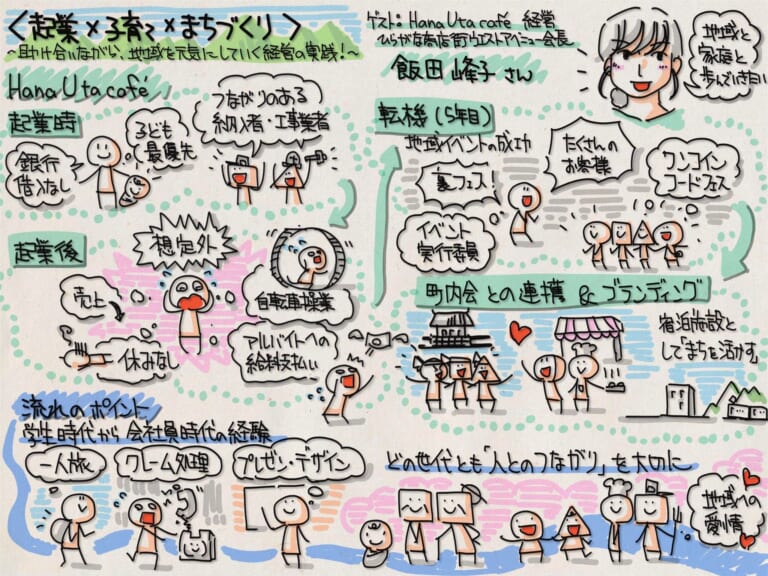 <起業×子育て×まちづくり>
～助け合いながら、地域を元気にしていく経営の実践！～
ゲスト：HanaUta café 経営
ひらがな商店街ウエストアベニュー会長
飯田 峰子さん
地域と
家庭と
歩んでいき白い
HanaUtacafé
起業時
銀行
借入なし
子ども
最優先
つながりのある
納入者・工事業者
転機(5年目)
地域イベントの成功
裏フェス
たくさんの
お客様
ワンコイン
コードフェス
イベント
実行委員
起業後
想定外
売上
休みなし
自転車操業
アルバイトへの
給料支払い
町内会との連携 & ブランディング
宿泊施設と
して「まちを活かす」
流れのポイント
学生時代から会社員時代の経験
一人旅
クレーム処理
プレゼン・デザイン
どの世代とも「人とのつながり」を大切に
地域への
愛情